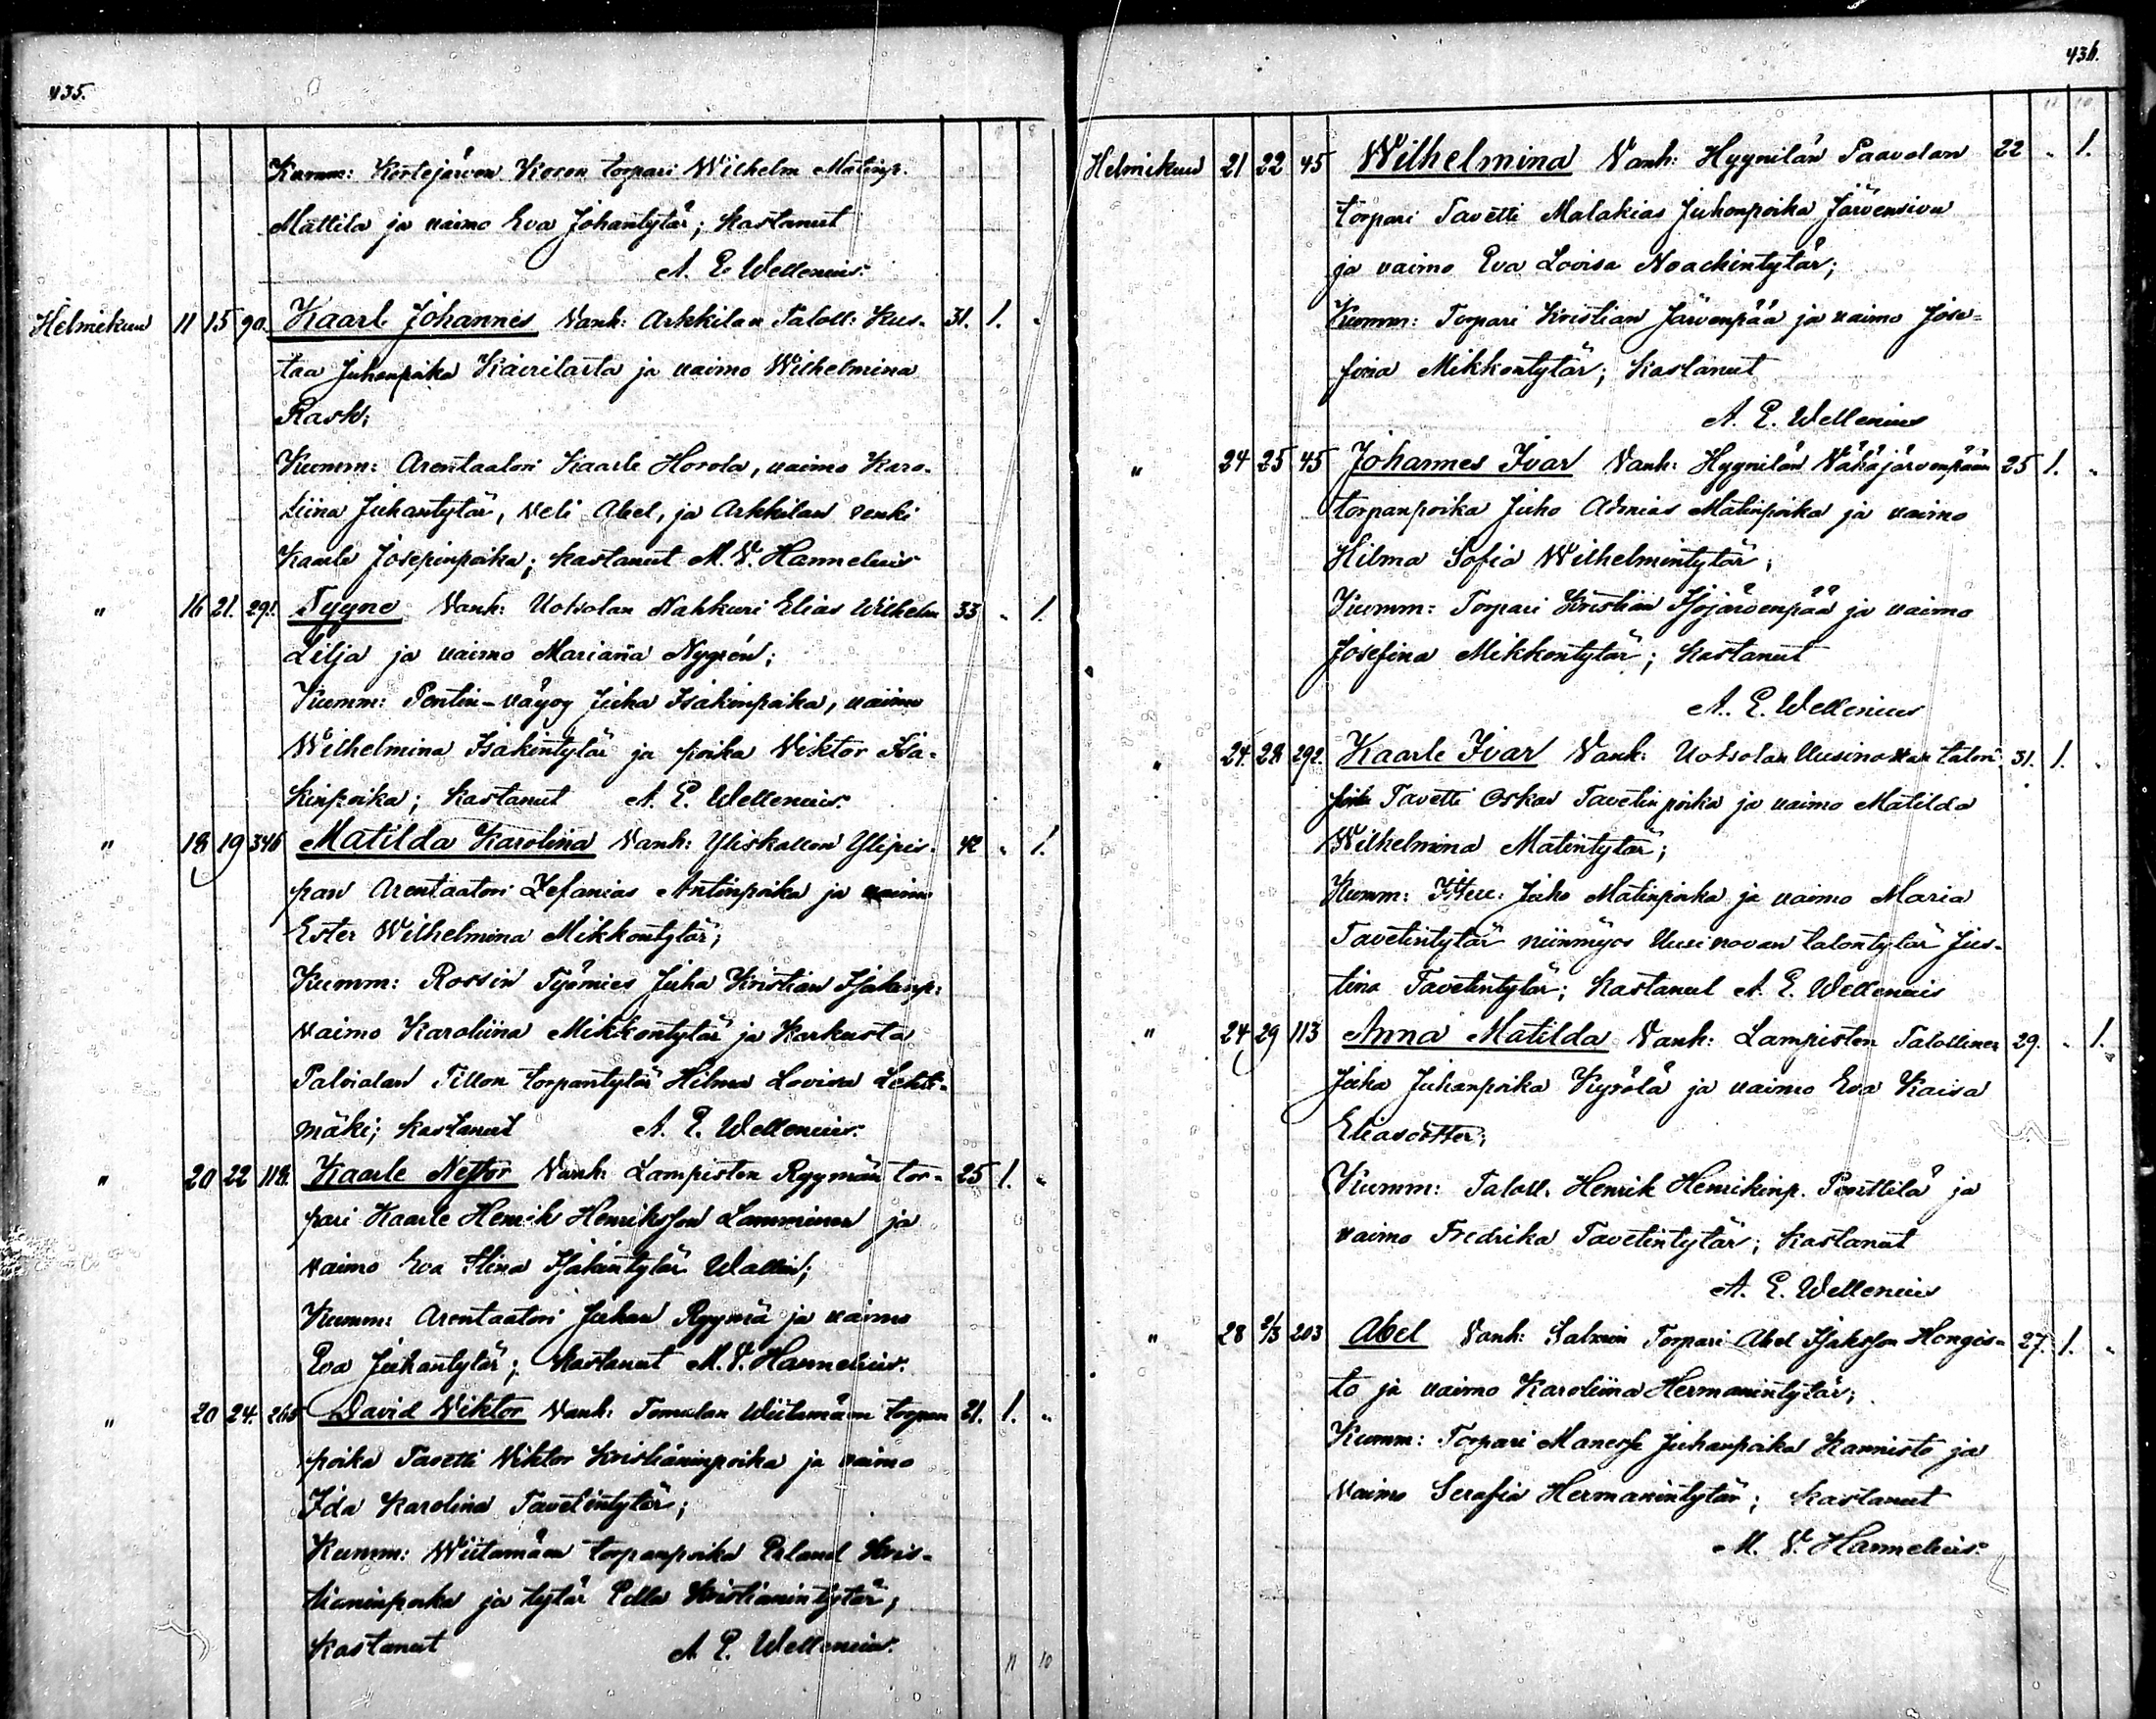 435.
Kumm: Kortejärven Kosen torpari Wilhelm Matinp.
Mattila ja vaimo Eva Johantytär; Kastanut
A. E. Wellenius.
Helmikuu 11 15 90. Kaarl Johannes Vanh: Arkkilan Taloll: Kus- 31. 1. "
taa Juhonpoika Kairilasta ja vaimo Wilhelmina
Rask;
Kumm: Arentaatori Kaarle Horola, vaimo Karo-
liina Juhantytär, veli Abel, ja Arkkilan renki
Kaarle Josepinpoika; Kastanut M. V. Hannelius
" 16 21. 291. Tyyne Vanh: Uotsolan Nahkuri Elias Wilhelm 33 " 1.
Lilja ja vaimo Mariana Nygrén;
Kumm: Pentin-väyry Juha Isakinpoika, vaimo
Wilhelmina Isakintytär ja poika Viktor Isa-
kinpoika; Kastanut A. E. Wellenius.
" 18 19 346 Matilda Karolina Vanh: Yliskallon Ylipis- 42 " 1.
pan Arentaatori Zefanias Antinpoika ja vaimo
Ester Wilhelmina Mikkontytär;
Kumm: Rossin Työmies Juha Kristian Isakinp:
vaimo Karoliina Mikkontytär ja Karkusta
Tillon torpantytär Hilma Lovisa
mäki; Kastanut A. E. Wellenius.
" 20 22 118. Kaarle Nestor Vanh: Lampisten Ryymän tor- 25 1. "
pari Kaarle Henrik Henriksson Lamminen ja
vaimo Eva Stina Isakintytär Wallin;
Kumm: Arentaatori Juhan Ryymä ja vaimo
Eva Juhantytär; Kastanut M. V. Hannelius.
" 20 24. David Viktor Vanh: Tomulan Wiitamäen torpan 21. 1. "
poika Tavetti Viktor Kristianinpoika ja vaimo
Ida Karolina Tavetintytär;
Kumm: Wiitamäen torpanpoika Erland Kris-
tianinpoika ja tytär Edla Kristianintytär;
Kastanut A. E. Wellenius.
11 10
436.
11 10
Helmikuu 21 22 45 Wilhelmina Vanh: Hyynilän Paavolan 22 " 1.
torpari Tavetti Malakias Juhonpoika Järvensivu
ja vaimo Eva Lovisa Noachintytär;
Kumm: Torpari Kristian Järvenpää ja vaimo Jose-
fina Mikkontytär; Kastanut
A. E. Wellenius
" 24 25 45 Johannes Ivar Vanh: Hyynilän Vähäjärvenpään 25 1. "
torpanpoika Juho Matinpoika ja vaimo
Hilma Sofia Wilhelmintytär;
Kumm: Torpari Kristian Isojärvenpää ja vaimo
Josefina Mikkontytär; Kastanut
A. E. Wellenius
" 24. 28 292. Kaarle Ivar Vanh: Uotsolan Uusinovan talon 31. 1. "
poika Tavetti Oskar Tavetinpoika ja vaimo Matilda
Wilhelmina Matintytär;
Kumm: Juho Matinpoika ja vaimo Maria
Tavetintytär niinmyös Uusinovan talontytär Jus-
tina Tavetintytär; Kastanut A. E. Wellenius
" 24 29 113 Anna Matilda Vanh: Lampisten Talollinen 29. " 1.
Juha Juhanpoika Kyrölä ja vaimo Eva Kaisa
Eliasdotter;
Kumm: Taloll. Henrik Henrikinp. Penttilä ja
vaimo Fredrika Tavetintytär; Kastanut
A. E. Wellenius
" 28 2/3 203 Abel Vanh: Salmin Torpari Abel Isaksson Hongis- 27. 1. "
to ja vaimo Karoliina Hermanintytär;
Kumm: Torpari Manasse Juhanpoika Kannisto ja
vaimo Serafia Hermanintytär; Kastanut
M. V. Hannelius.